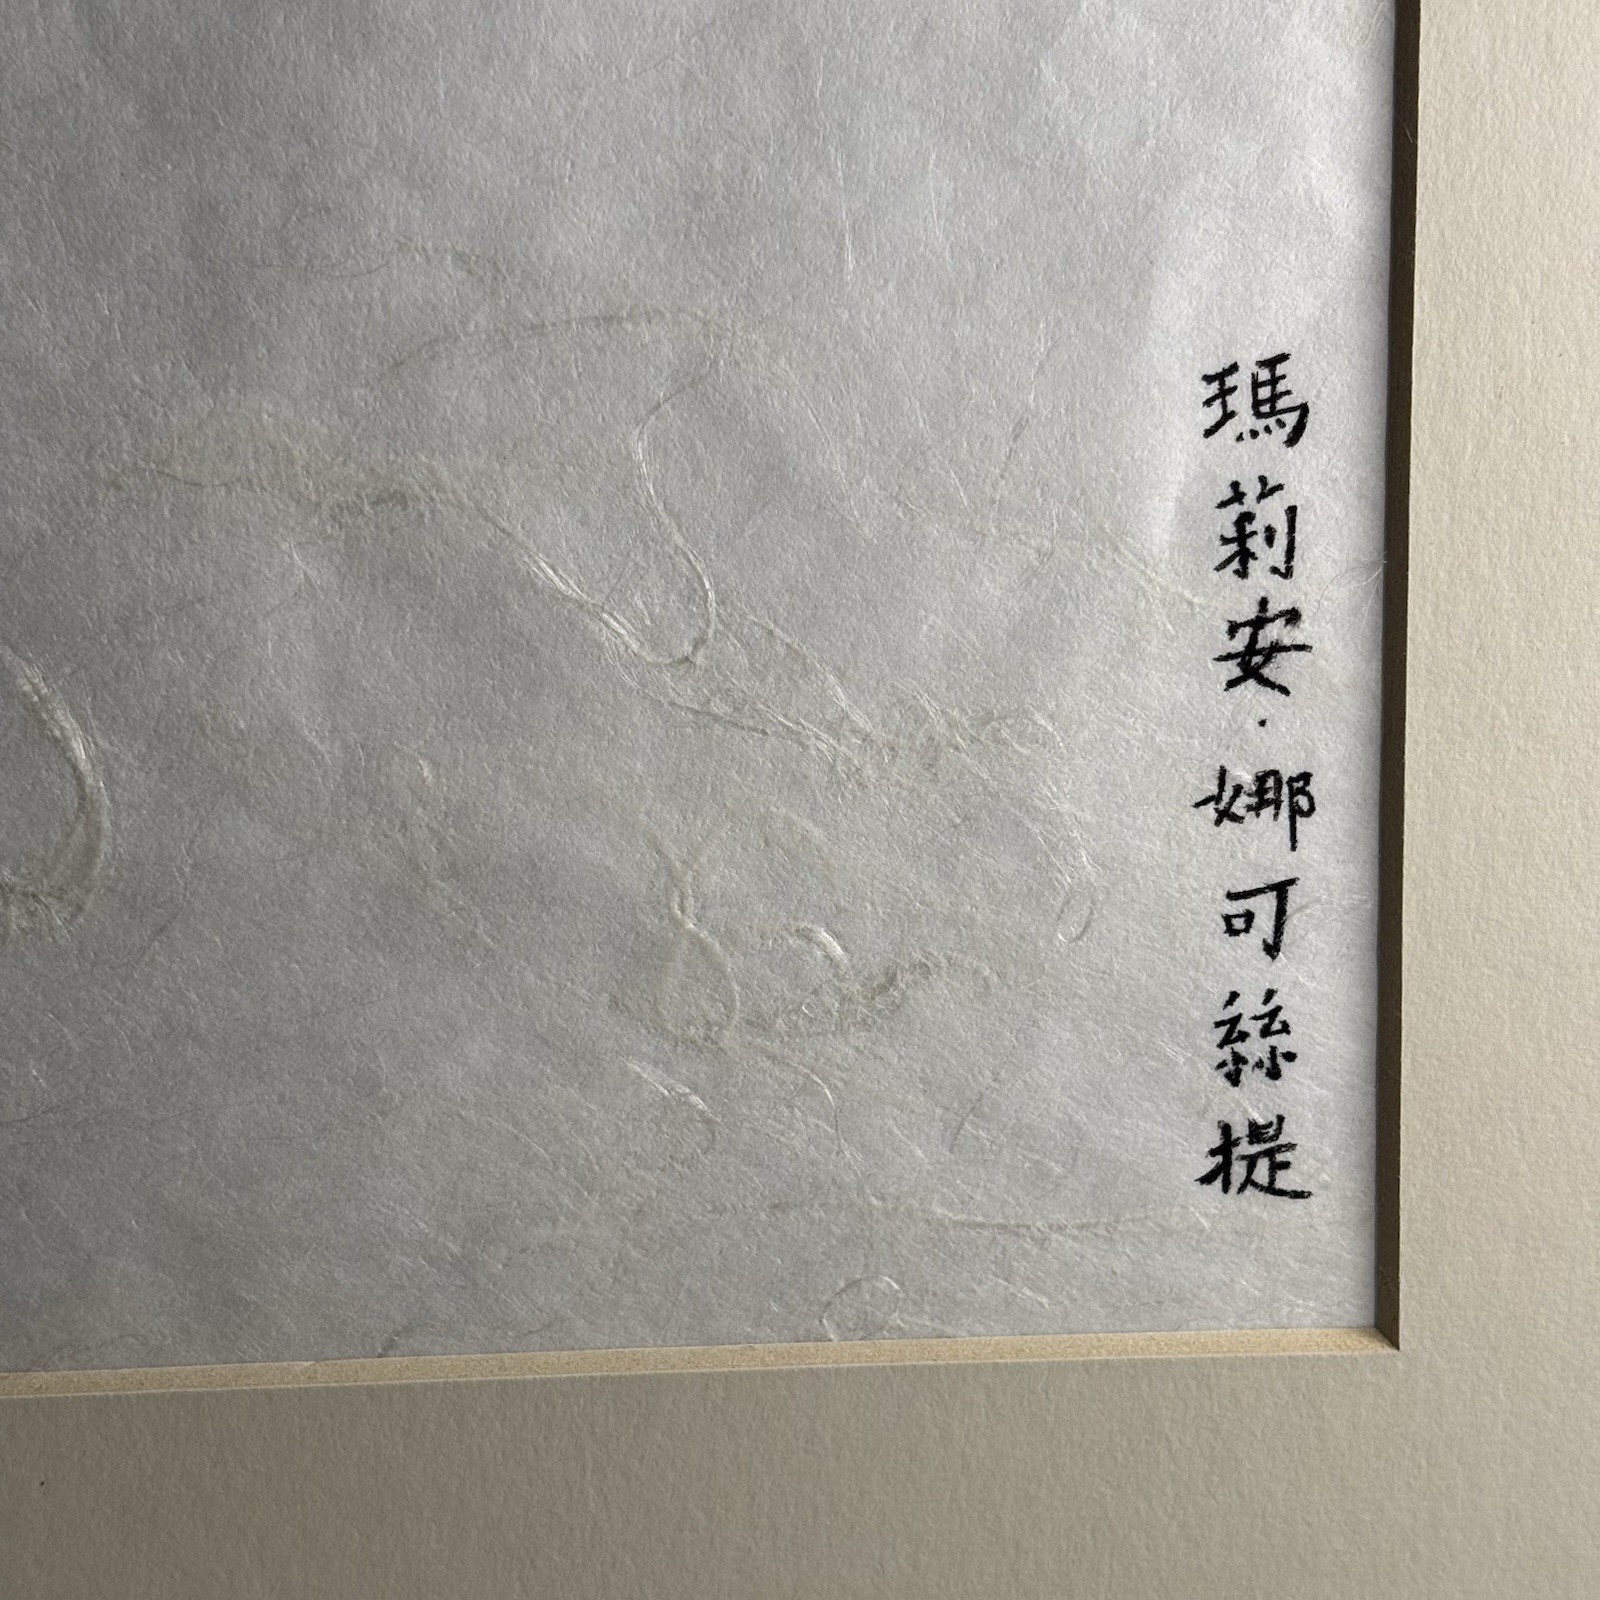 瑪莉安·娜可絲提